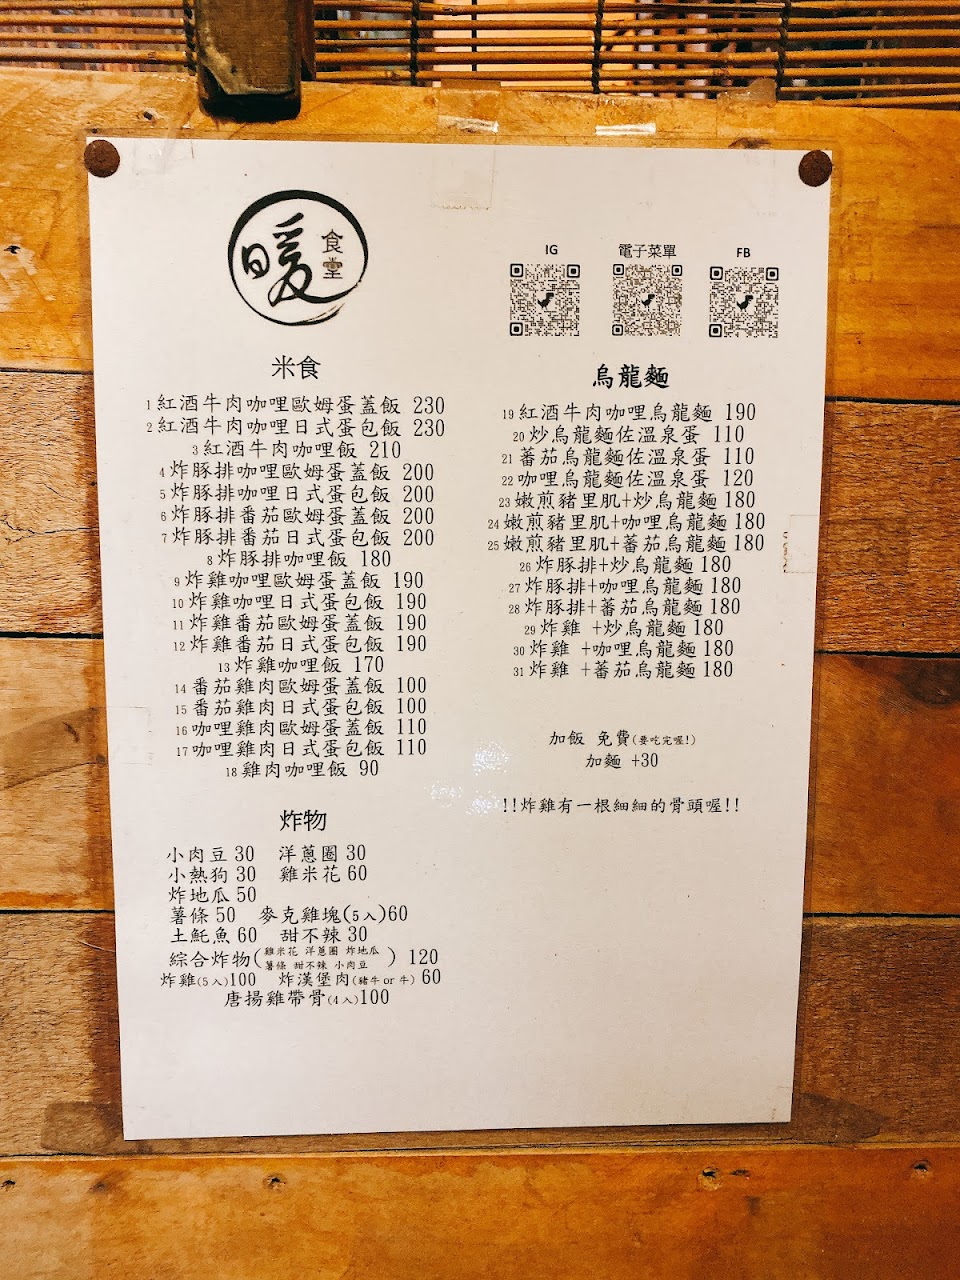 暖 食堂
IG 電子菜單 FB
米食
1 紅酒牛肉咖哩歐姆蛋蓋飯 230
2 紅酒牛肉咖哩日式蛋包飯 230
3 紅酒牛肉咖哩飯 210
4 炸豚排咖哩歐姆蛋蓋飯 200
5 炸豚排咖哩日式蛋包飯 200
6 炸豚排番茄歐姆蛋蓋飯 200
7 炸豚排番茄日式蛋包飯 200
8 炸豚排咖哩飯 180
9 炸雞咖哩歐姆蛋蓋飯 190
10 炸雞咖哩日式蛋包飯 190
11 炸雞番茄歐姆蛋蓋飯 190
12 炸雞番茄日式蛋包飯 190
13 炸雞咖哩飯 170
14 番茄雞肉歐姆蛋蓋飯 100
15 番茄雞肉日式蛋包飯 100
16 咖哩雞肉歐姆蛋蓋飯 110
17 咖哩雞肉日式蛋包飯 110
18 雞肉咖哩飯 90
炸物
小肉豆 30 洋蔥圈 30
小熱狗 30 雞米花 60
炸地瓜 50
薯條 50 麥克雞塊(5入)60
土魠魚 60 甜不辣 30
綜合炸物(雞米花 洋蔥圈 炸地瓜 薯條 甜不辣 小肉豆) 120
炸雞(5入)100 炸漢堡肉(豬牛or牛) 60
唐揚雞帶骨(4入)100
烏龍麵
19 紅酒牛肉咖哩烏龍麵 190
20 炒烏龍麵佐溫泉蛋 110
21 蕃茄烏龍麵佐溫泉蛋 110
22 咖哩烏龍麵佐溫泉蛋 120
23 嫩煎豬里肌+炒烏龍麵 180
24 嫩煎豬里肌+咖哩烏龍麵 180
25 嫩煎豬里肌+蕃茄烏龍麵 180
26 炸豚排+炒烏龍麵 180
27 炸豚排+咖哩烏龍麵 180
28 炸豚排+蕃茄烏龍麵 180
29 炸雞 +炒烏龍麵 180
30 炸雞 +咖哩烏龍麵 180
31 炸雞 +蕃茄烏龍麵 180
加飯 免費(要吃完喔!)
加麵 +30
!!炸雞有一根細細的骨頭喔!!